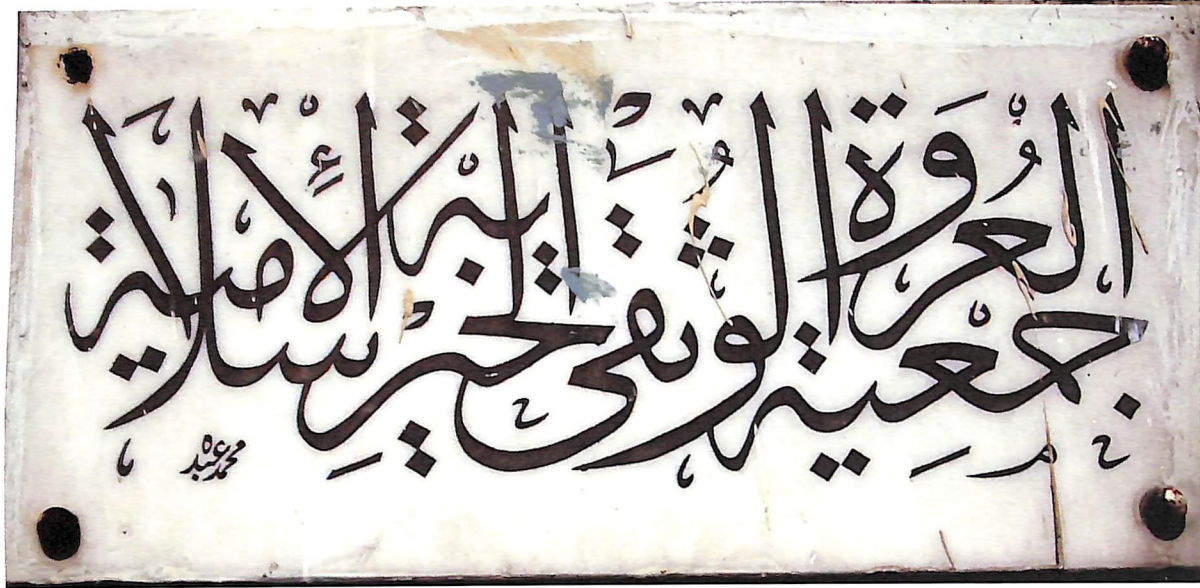 جمعية العروة الوثقى الخيرية الإسلامية
محمد عبده